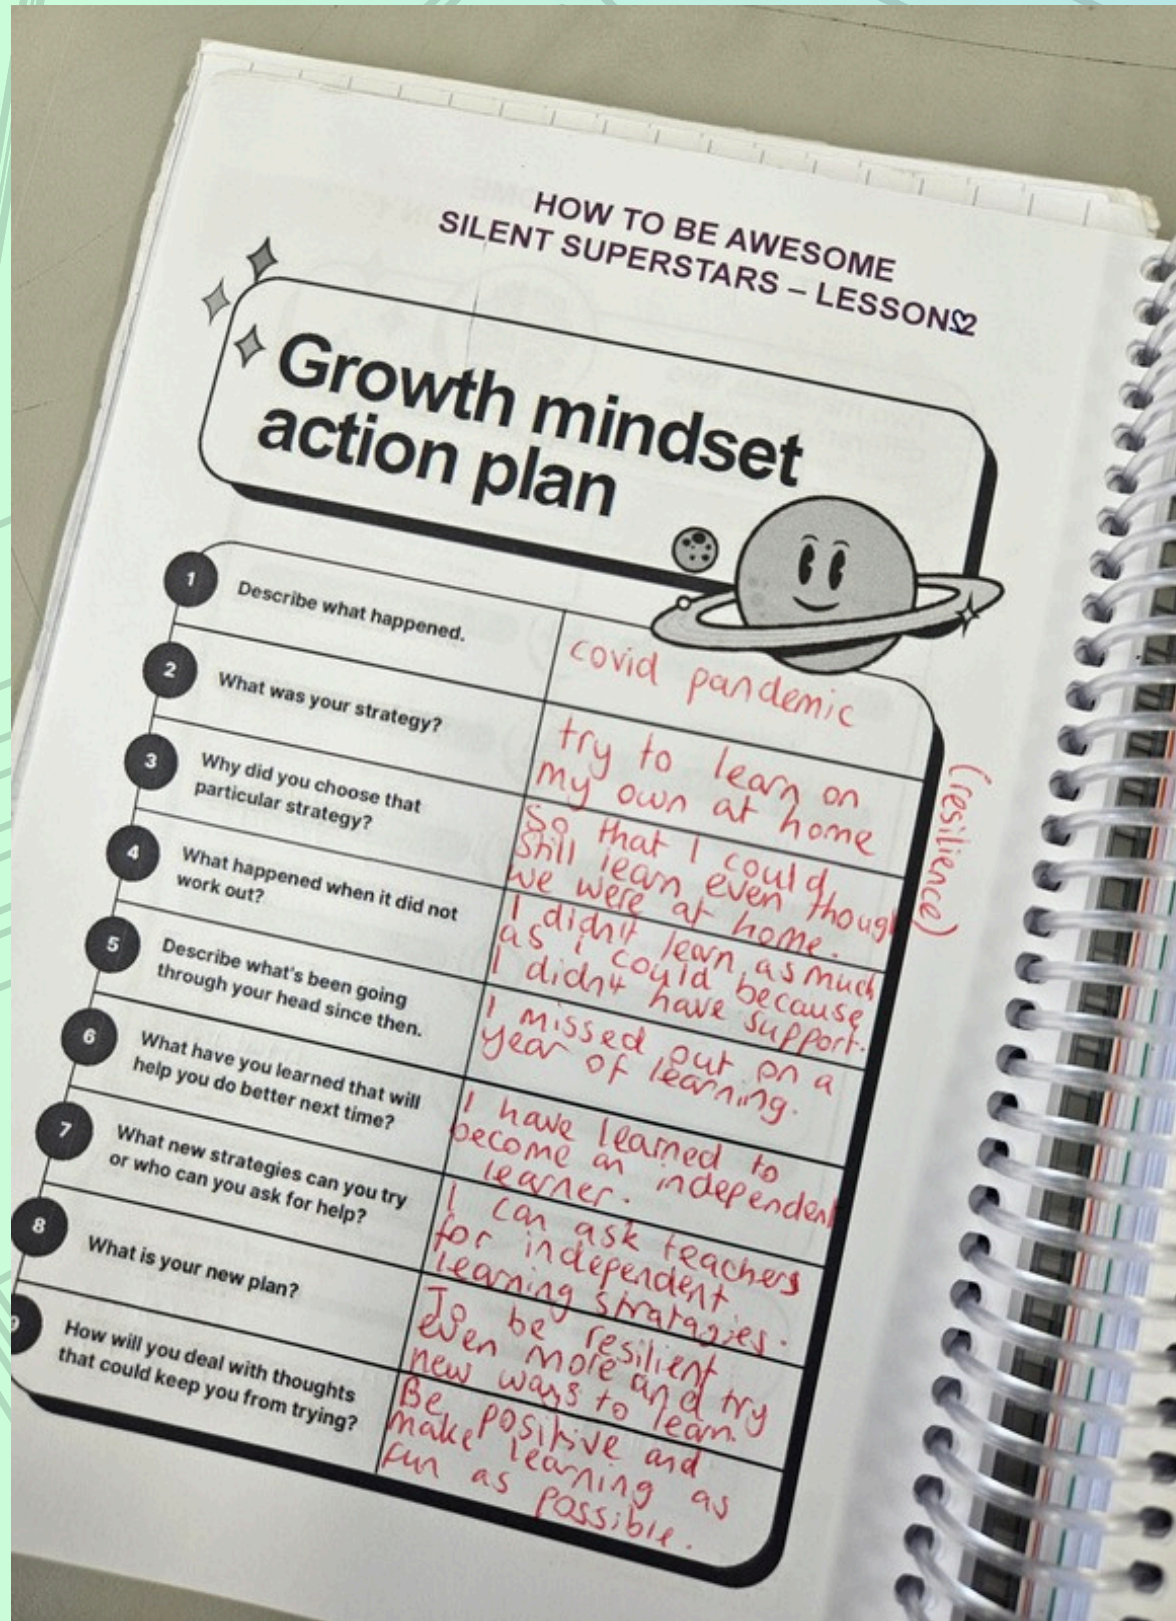 HOW TO BE AWESOME
SILENT SUPERSTARS – LESSON 2
Growth mindset
action plan
1
Describe what happened.
covid pandemic
2
What was your strategy?
try to learn on
my own at home
3
Why did you choose that
particular strategy?
So that I could
still learn even though
we were at home.
(resilience)
4
What happened when it did not
work out?
I didn't learn as much
as i could because
I didn't have support.
5
Describe what's been going
through your head since then.
I missed out on a
year of learning.
6
What have you learned that will
help you do better next time?
I have learned to
become an independent
learner.
7
What new strategies can you try
or who can you ask for help?
I can ask teachers
for independent
learning stratagies.
8
What is your new plan?
To be resilient
even more and try
new ways to learn.
9
How will you deal with thoughts
that could keep you from trying?
Be positive and
make learning as
fun as possible.